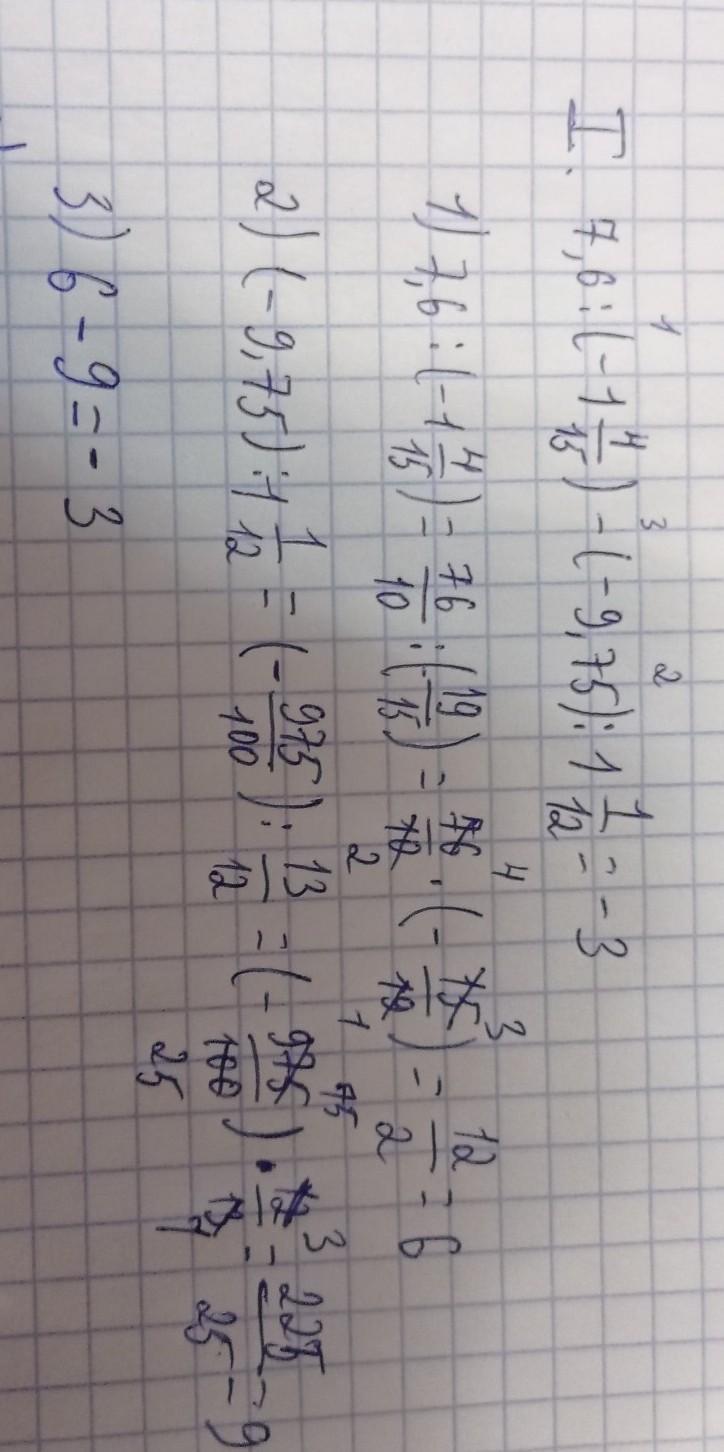 I. 7,6 : (-1 4/15) - (-9,75) : 1 1/12 = -3
1) 7,6 : (-1 4/15) = 76/10 : (19/15) = 76/10 · (-15/19) = 12/2 = 6
2) (-9,75) : 1 1/12 = (-975/100) : 13/12 = (-975/100) · 12/13 = 225/25 = 9
3) 6 - 9 = -3